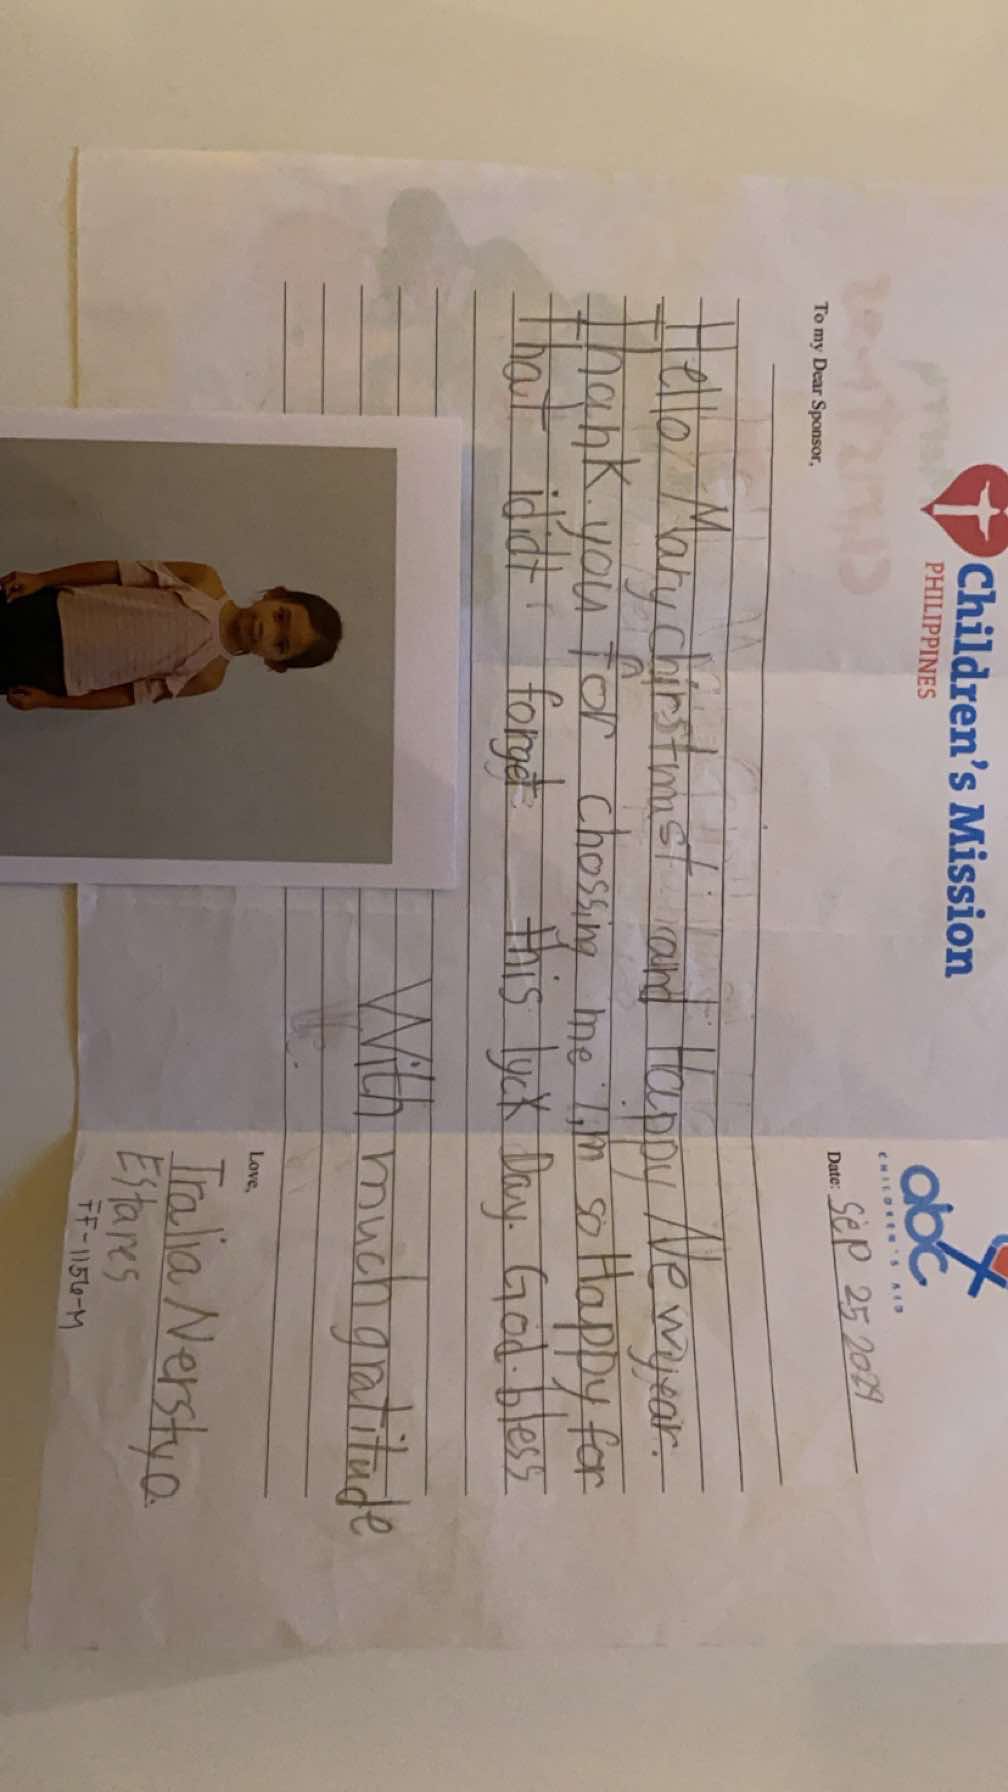 Children's Mission
PHILIPPINES
abc
CHILDREN'S AID
Date: Sep 25 2024
To my Dear Sponsor,
Hello Mary chirstmast and Happy Newyear.
Thank you for chossing me I,m so Happy for
That ididt forget this lyck Day. God.bless
With much gratitude
Love,
Tralia Nerstya
Estares
FF-1156-M